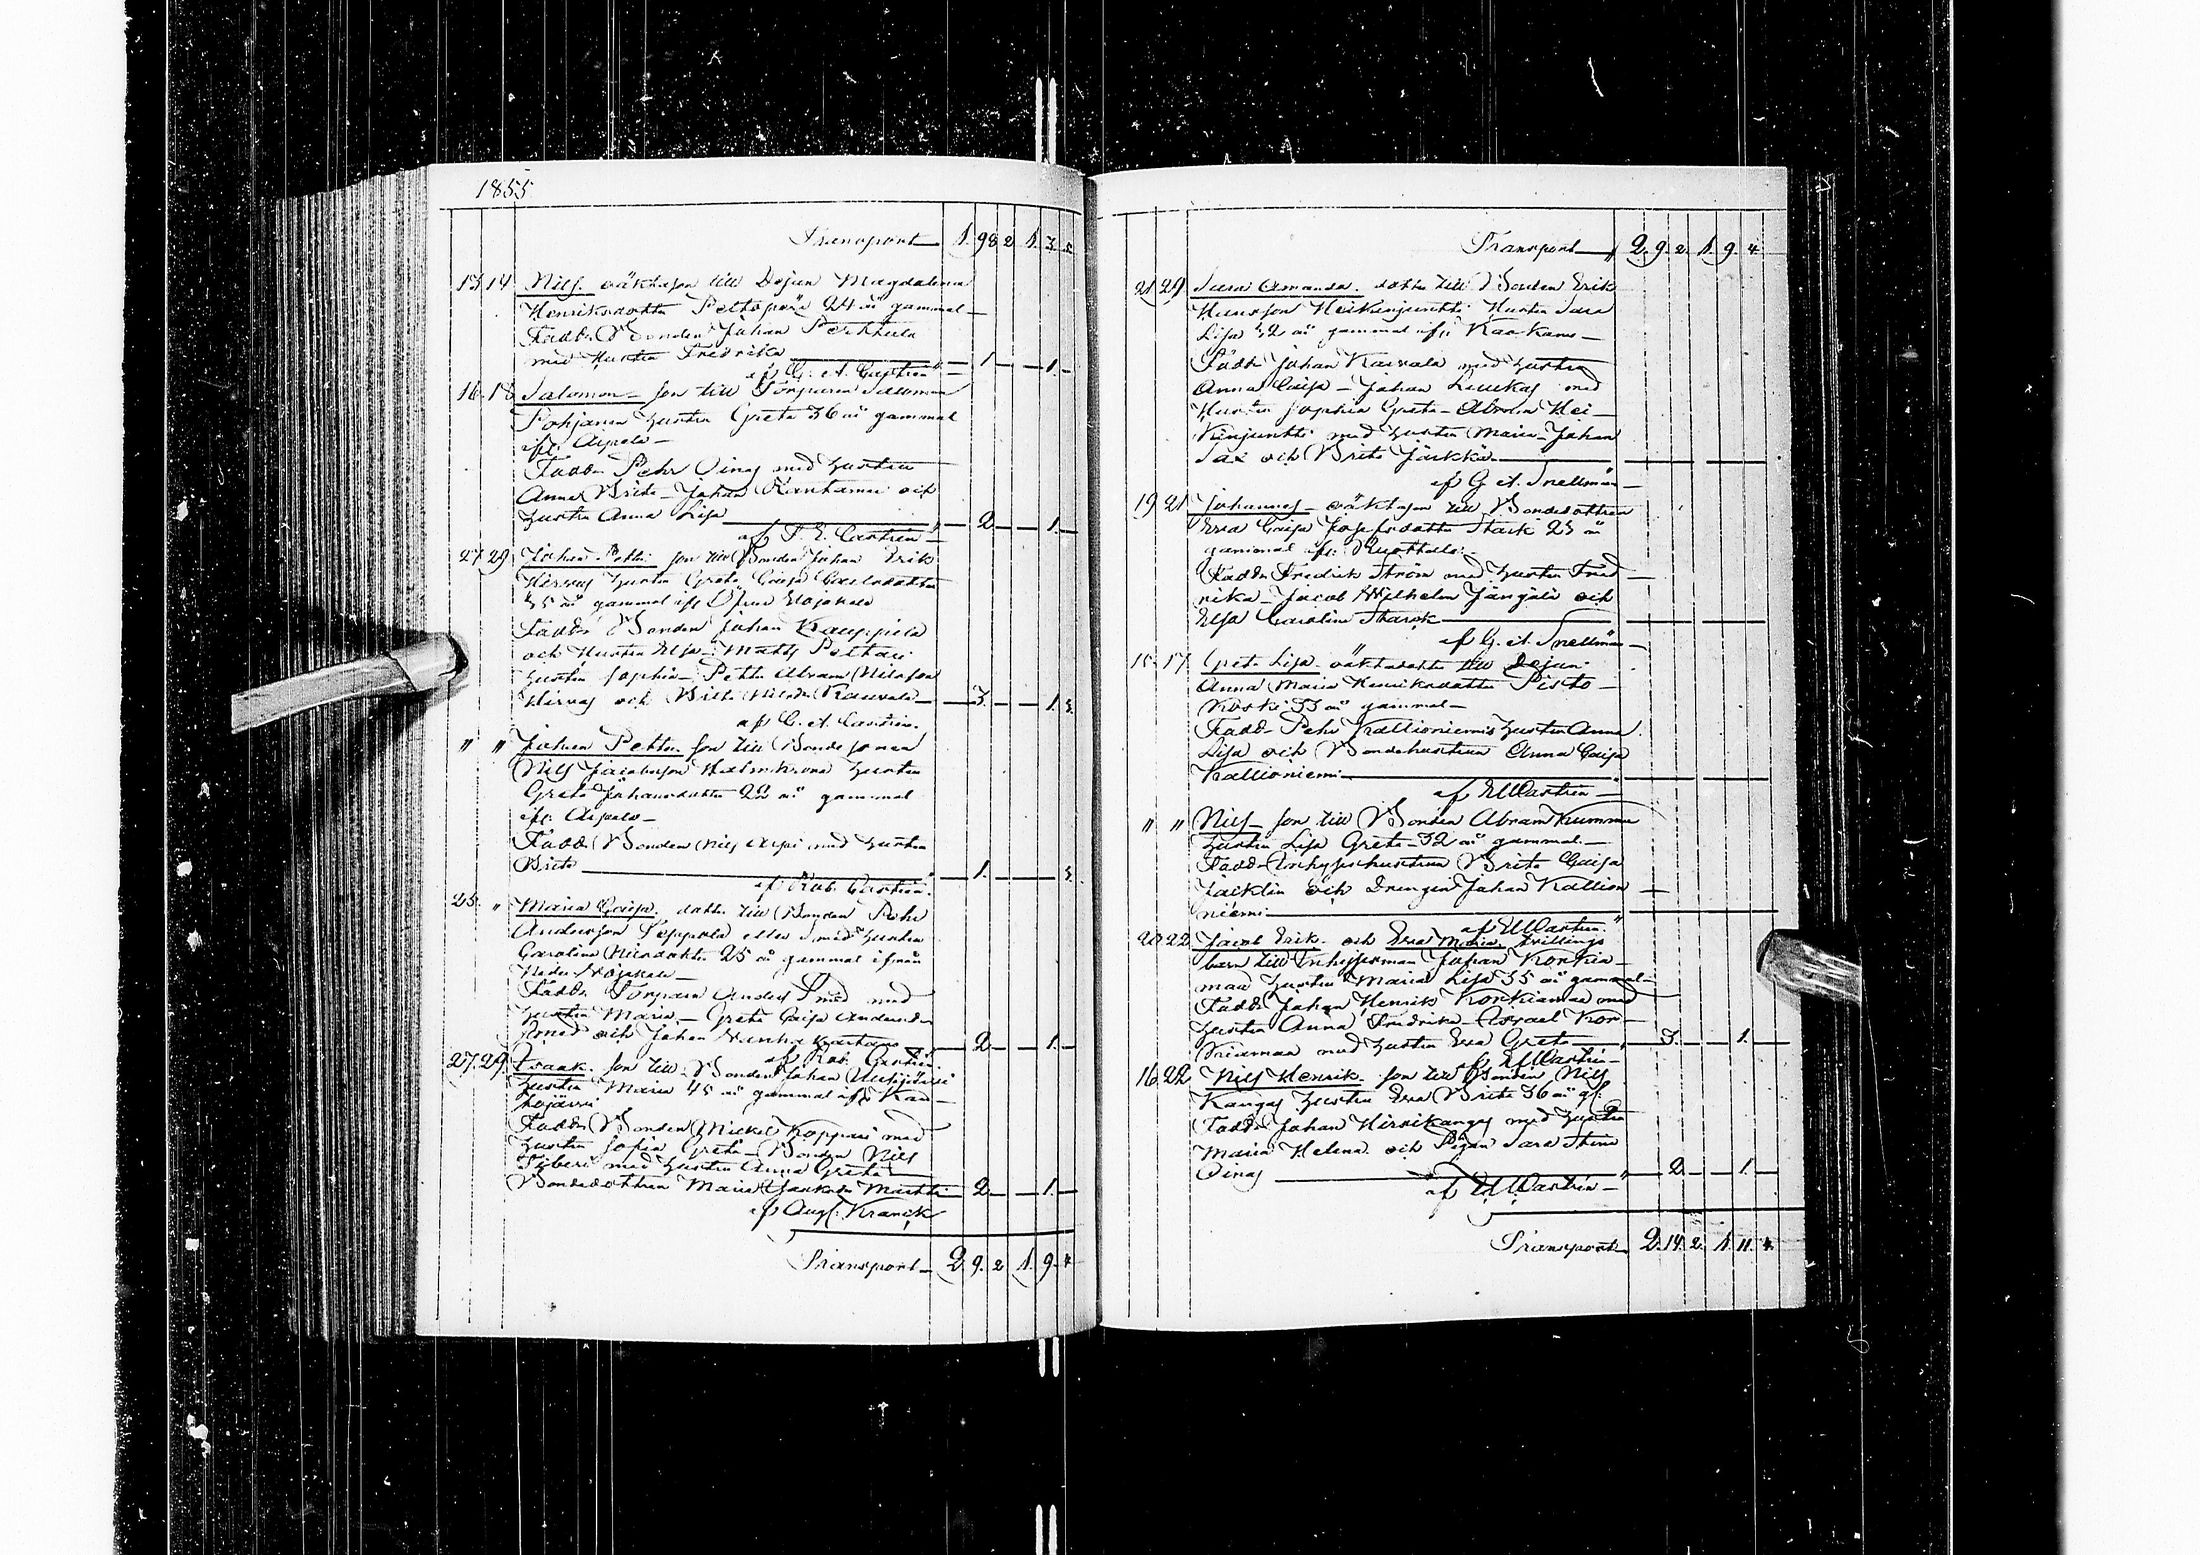 1855
Transport 1. 98 2 1. 3. 2.
13 14 Nils. oäkta son till Pojan Magdalena
Henriksdotter Peltoperä 24 år gammal
Fadd. Bonden Johan Perttula
med Hustru Fredrika 1 1.
af G. A. Castrén
16. 18 Salomon son till Torparen Salomon
Pohjanen hustru Greta 36 år gammal
ifr. Alpela
Fadd. Pehr Oinas med hustru
Anna Brita Johan Rantamaa och
hustru Anna Lisa 2 1.
af P. E. Castrén
27 29 Johan Petter son till Bonden Johan Erik
Hirvas hustru Greta Caisa Carlsdotter
35 år gammal ifr Öfver Kojakala
Fadd. Bonden Johan Kauppila
och Hustru Elsa Matts Peltari
hustru Sophia Petter Abram Nilsson
Hirvas och Brita Nilsd. Kauvala 3. 1. 3.
af G. A. Castrén.
" " Johan Petter son till Bonde sonen
Nils Jacobsson Halmkrona hustru
Greta Johansdotter 22 år gammal
ifr. Alpela
Fadd. Bonden Nils Alpi med hustru
Brita 1. 3.
af Rob. Castrén.
25. " Maria Caisa. dotter till Bonden Pehr
Andersson Seppälä eller Smed hustru
Carolina Nilsdotter 25 år gammal ifrån
Neder Kojakala
Fadd. Torparen Anders Smed med
hustru Maria Greta Caisa Andersd.
Smed och Johan 2 1.
af Rob. Castrén.
27. 29. Isaak. son till Bonden Johan Uusijärvi
hustru Maria 45 år gammal ifr Kau
kojärvi
Fadd. Bonden Mickel Koppari med
hustru Sofia Greta Bonden Nils
med hustru Anna Greta
Bondedottren Maria Martti 2 1.
af Aug. Kranck
Transport 2. 9. 2 1. 9. 4
Transport 2. 9. 2. 1. 9. 4.
21 29 Sara Amanda. dotter till Bonden Erik
Hansson Heikinjuntti Hustru Sara
Lisa 32 år gammal ifr. Kaakamo
Fadd. Johan Kauvala med hustru
Anna Caisa Johan Leukas med
Hustru Sophia Greta Abram Hei
kinjuntti med hustru Maria Johan
Sax och Brita Jäckkä
af G. A. Snellman
19 21 Johannes oäkta son till Bondedottren
Eva Caisa Josefsdotter Stark 23 år
gammal ifr. Ruottala
Fadd. Fredrik Ström med hustru Fred
rika Jacob Wilhelm Jängälä och
Elsa Carolina Starck
af G. A. Snellman
15 17 Greta Lisa oäkta dotter till Pojan
Anna Maria Henriksdotter Pisto
koski 33 år gammal
Fadd. Pehr Kallioniemis hustru Anna
Lisa och Bondehustrun Anna Caisa
Kallioniemi
af E W Castrén
" " Nils son till Bonden Abram Kummu
hustru Lisa Greta 32 år gammal
Fadd. Inhyseshustrun Brita Caisa
Jäcklin och Drengen Johan Kallion
niemi
af E W Castrén
20 22 Jacob Erik. och Eva Maria tvillings
barn till Inhysesman Johan Korkia
maa hustru Maria Lisa 35 år gammal
Fadd. Johan Henrik Korkiamaa med
hustru Anna Fredrika Israel Kor
kiamaa med hustru Eva Greta 3. 1.
af E W Castrén
16 22 Nils Henrik. son till Bonden Nils
Kangas hustru Eva Brita 36 år gl.
Fadd. Johan Hirvikangas med hustru
Maria Helena och Pigan Sara Stina
Oinas 2. 1.
af E W Castrén
Transport 2. 14. 2. 1. 11. 4.